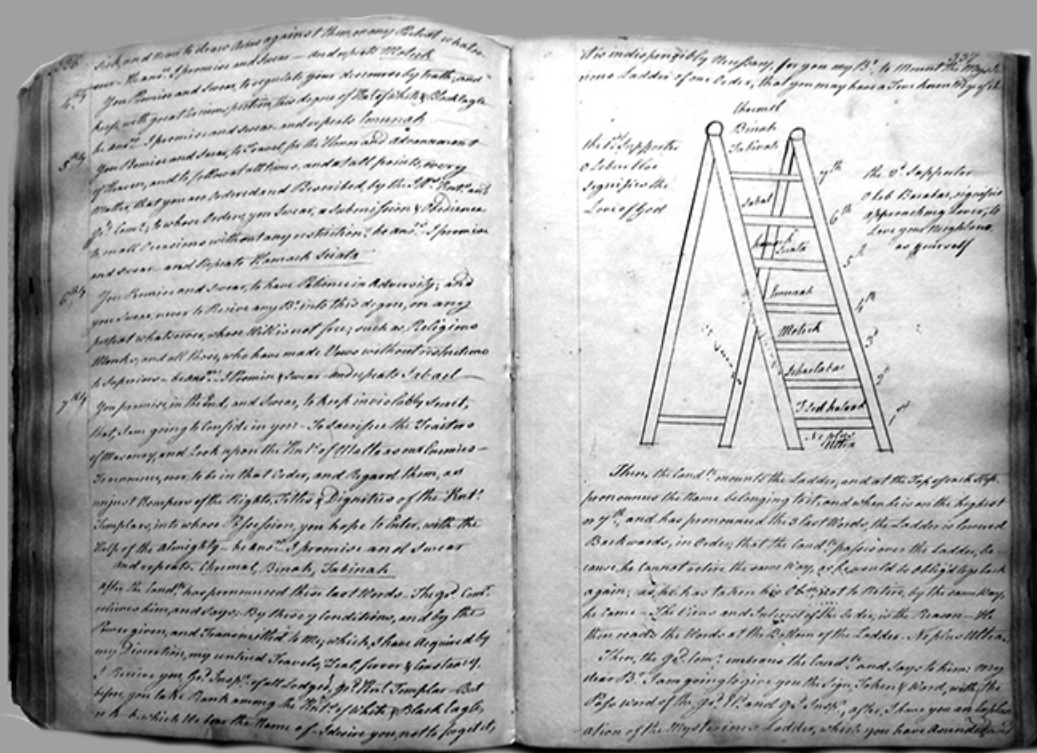 336
such, and never to draw Arms against them, on any Pretext whatso-
ever. He answ.rs I promise and Swear — And repeats Motech
4thly You Promise and Swear, to regulate your discourse by truth, and
keep, with great Circumspection, this degree of Kat. of White & Black Eagle.
he answ.rs I promise and swear — and repeats Emunah
5thly You Promise and Swear, to Travel, for the Honor and advancement
of Heaven, and to follow at all times, and at all points, every
Matter, that you are Ordered and Prescribed, by the Knts. and
Gd. Comr.; to whose Orders, you Swear, a Submission & Obedience
on all Occasions without any restrictions: he answ.rs — I promise
and swear — and Repeats Hamach Sciata
6thly You Promise and Swear, to have Patience in Adversity; and
you Swear, never to Recive any Br. into this degree, on any
pretext whatsoever, whose Will is not free; such as Religious
Monks, and all those, who have made Vows without restrictions
to Superiors — he answ.rs: I Promise & Swear — and repeats Sabael
7thly You promise, in the End, and Swear, to keep inviolably Secret,
that, I am going to Confide in you — To Sacrifice the Traitors
of Masonry, and Look upon the Knts. of Malta, as our Enemies —
To renounce, ever, to be in that Order, and Regard them, as
unjust Usurpers of the Rights, Titles & Dignities of the Knts.
Templars, into whose Possession, you hope to Enter, with the
Help of the Almighty — he answ.rs I promise and Swear
and repeats. Choemel, Binah, Tabinah
after the Candte. has pronounced these last Words. The Gd. Comr.
relieves him, and Says; By the 7 Conditions, and by the
Power given, and Transmitted to Me, which, I have Acquired by
my Discretion, my untired Travels, Zeal, fervor & Constancy,
I Receive you Gd. Inspr. of all Lodges, Gd. Knt. Templar — But
before you take Rank among the Knts. of White & Black Eagle,
which We bear the Name of — I desire you, not to forget it,
337
it is indispensibly Necessary, for you my Br. to Mount the Myste-
rious Ladder of our Order, that you may have a True Knowledge of it
Choemel
Binah
Tabinah
the 1st Supporter
Oheb Eloe
Signifies the
Love of God
the 2d. Supporter
Oheb Karobo, signifies
approaching Lover, to
Love your Neighbour,
as yourself
7th
Sabal
6th
Hamach
Sciata
5th
Emunah
4th
Motech
3d
Schaelabac
2d
Tsedhakad
1st
Ne plus
Ultra
Then, the Candte. mounts the Ladder, and at the Top of each Step,
pronounces the Name, belonging to it, and when he is on the highest
or 7th, and has pronounced the 3 last Words, the Ladder is lowered
Backwards, in Order, that the Candte. passes over the Ladder, be-
cause, he Cannot retire the same Way, as he would be Oblig'd to go back
again; as, he has taken his Obln. not to Retire, by the same Way,
he Came — The Views and Interest of the Order, is the Reason — He
then reads the Words at the Bottom of the Ladder — Ne plus Ultra
Then, the Gd. Comr. embraces the Candte. and Says to him: My
dear Br. I am going to give you the Sign, Token & Word, with the
Pass word of the Gd. El. and Gd. Inspr., after, I have you an Explan-
ation of the Mysterious Ladder, which you have Ascended, and